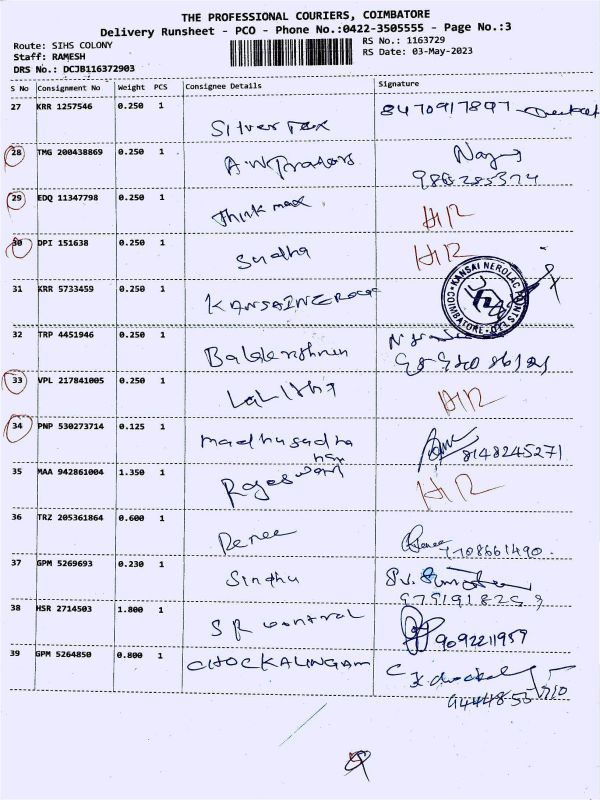 THE PROFESSIONAL COURIERS, COIMBATORE
Delivery Runsheet - PCO - Phone No.:0422-3505555 - Page No.:3
Route: SIHS COLONY
RS No.: 1163729
Staff: RAMESH
RS Date: 03-May-2023
DRS No.: DCJB116372903
S No Consignment No Weight PCS Consignee Details Signature
27 KRR 1257546 0.250 1 8470917897
Silver Tex
28 TMG 200438869 0.250 1
29 EDQ 11347798 0.250 1 H/R
Think max
30 DPI 151638 0.250 1 H/R
Sudha
31 KRR 5733459 0.250 1
KANSAI NEROLAC PAINTS LTD COIMBATORE
32 TRP 4451946 0.250 1
Balakrishnan
33 VPL 217841005 0.250 1 H/R
Lalitha
34 PNP 530273714 0.125 1
madhusadha 8148245271
35 MAA 942861004 1.350 1 H/R
Rajeswari
36 TRZ 205361864 0.600 1
Renee Renee 9708661490
37 GPM 5269693 0.230 1
Sindhu
38 HSR 2714503 1.800 1
SR control 9092211959
39 GPM 5264850 0.800 1
CHOCKALINGAM